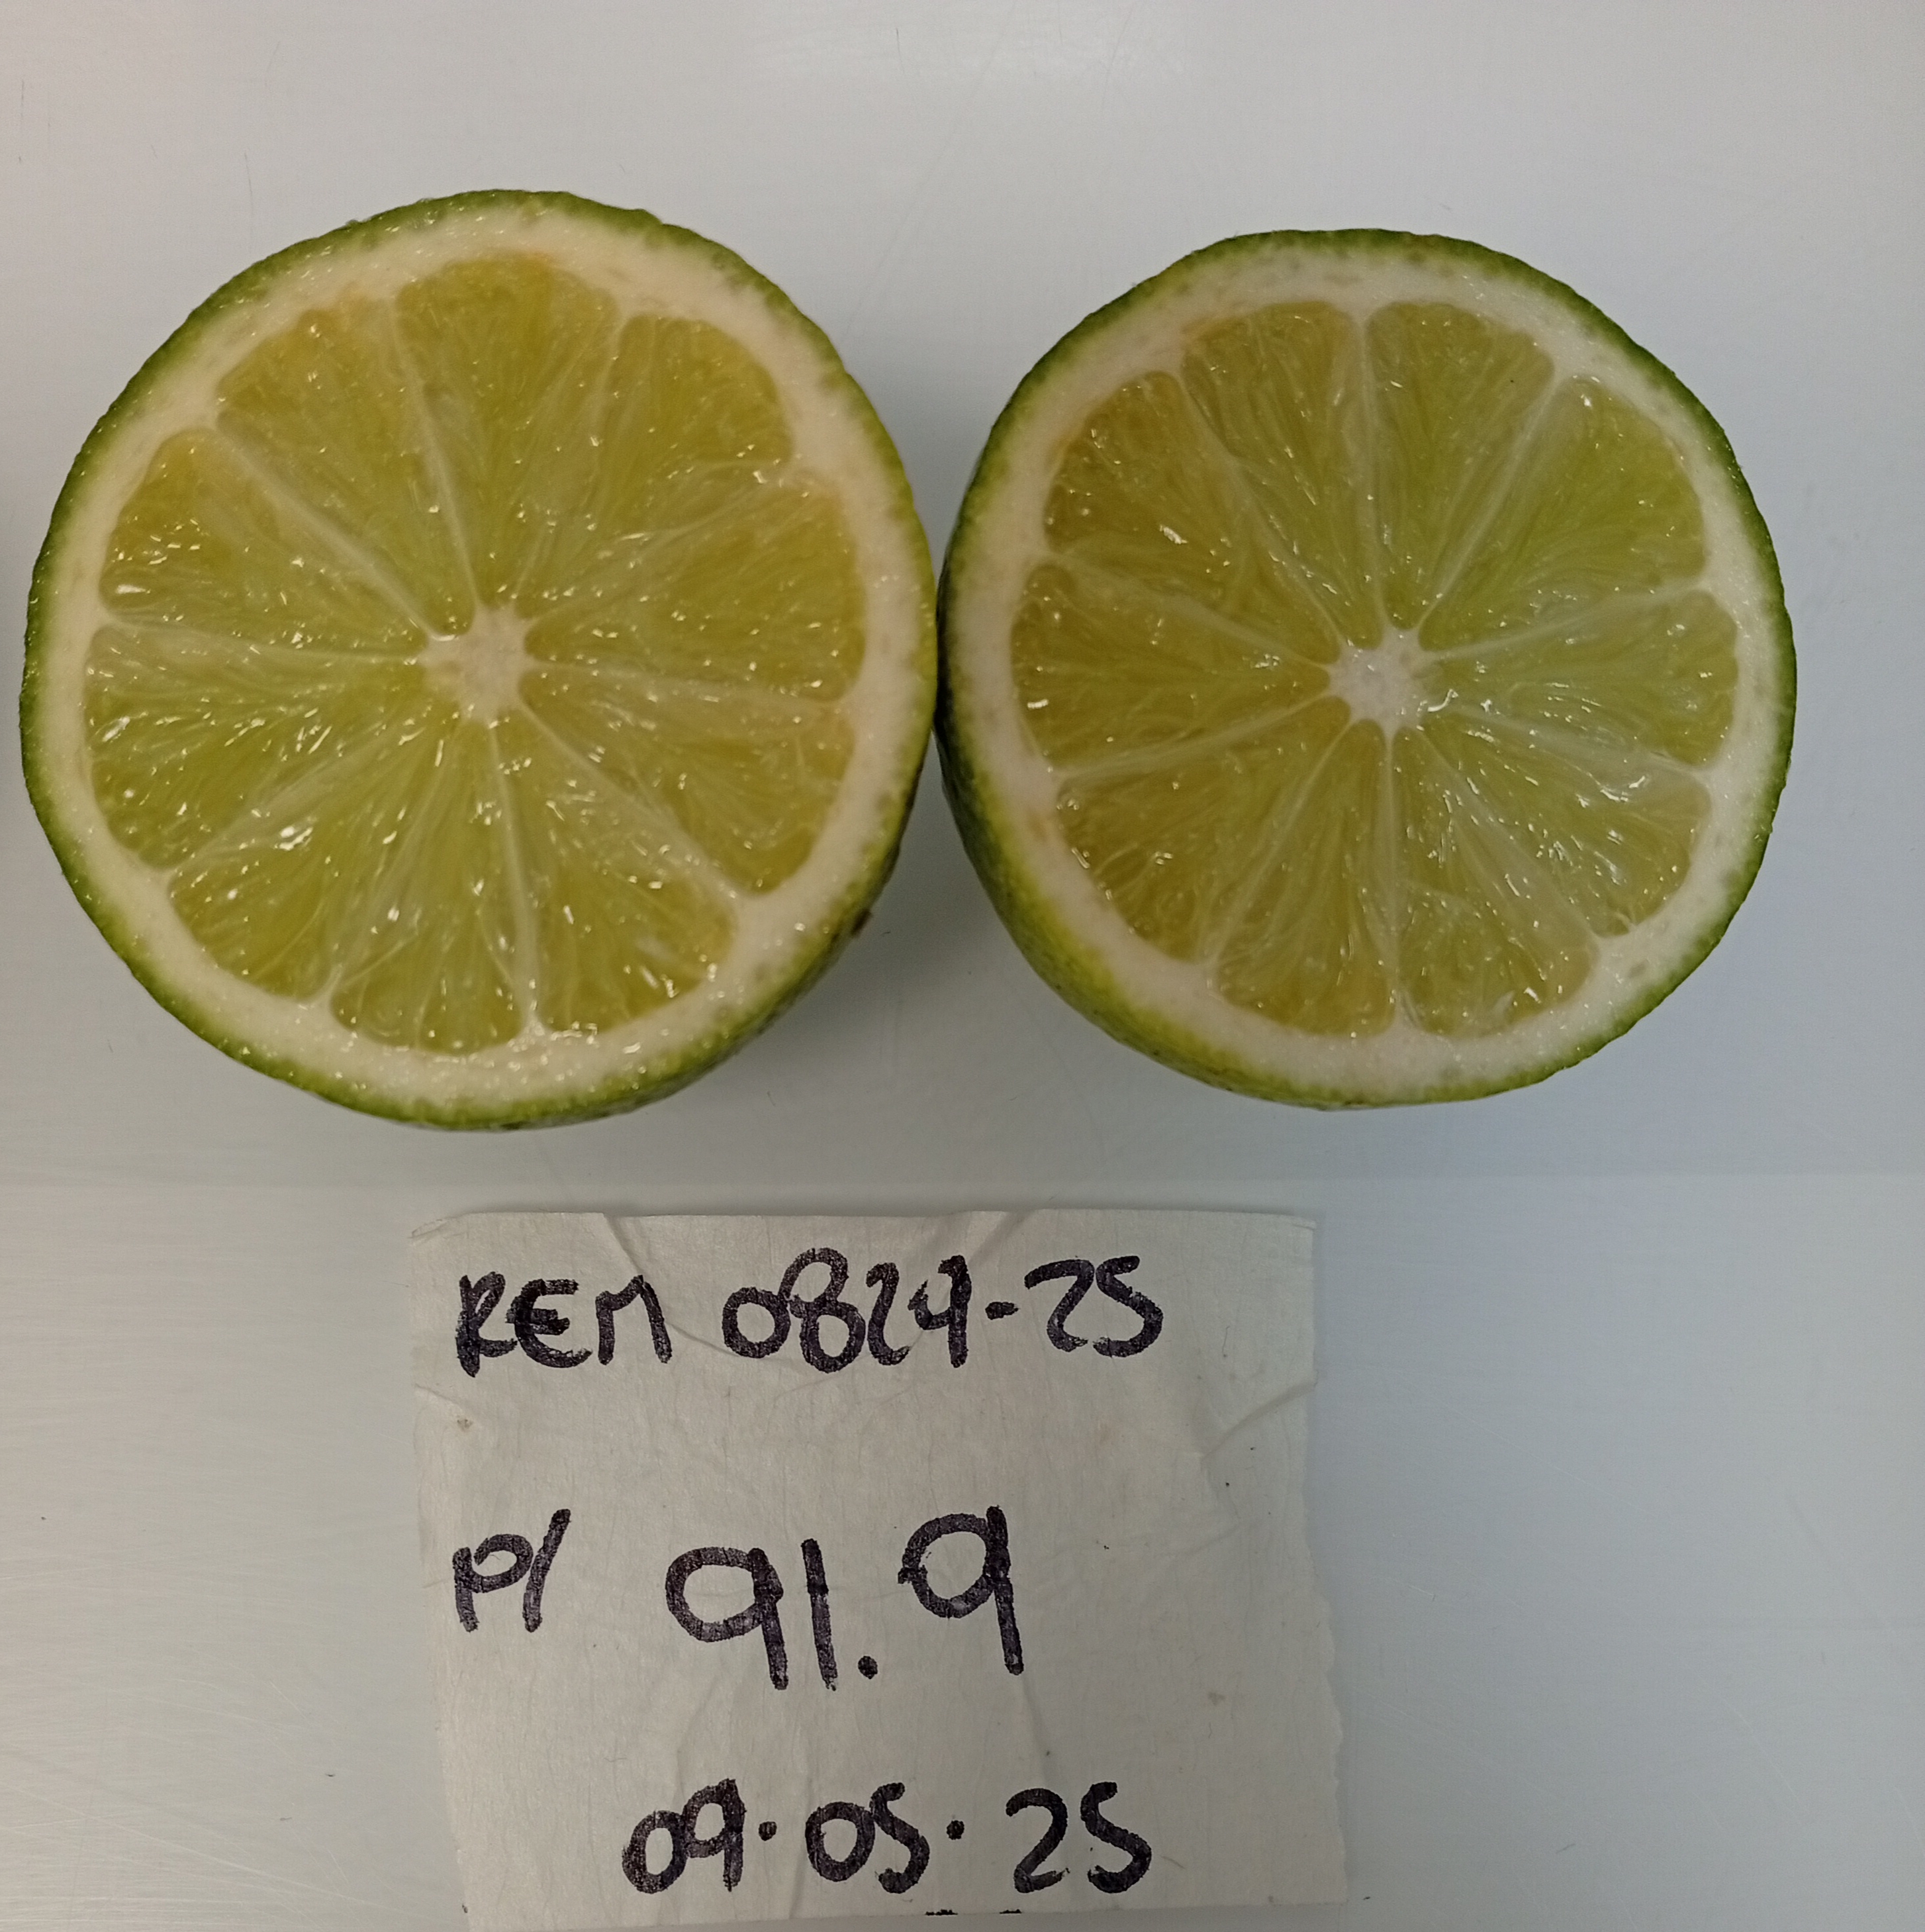 REM 0824-25
P/ 91.9
09.05.25